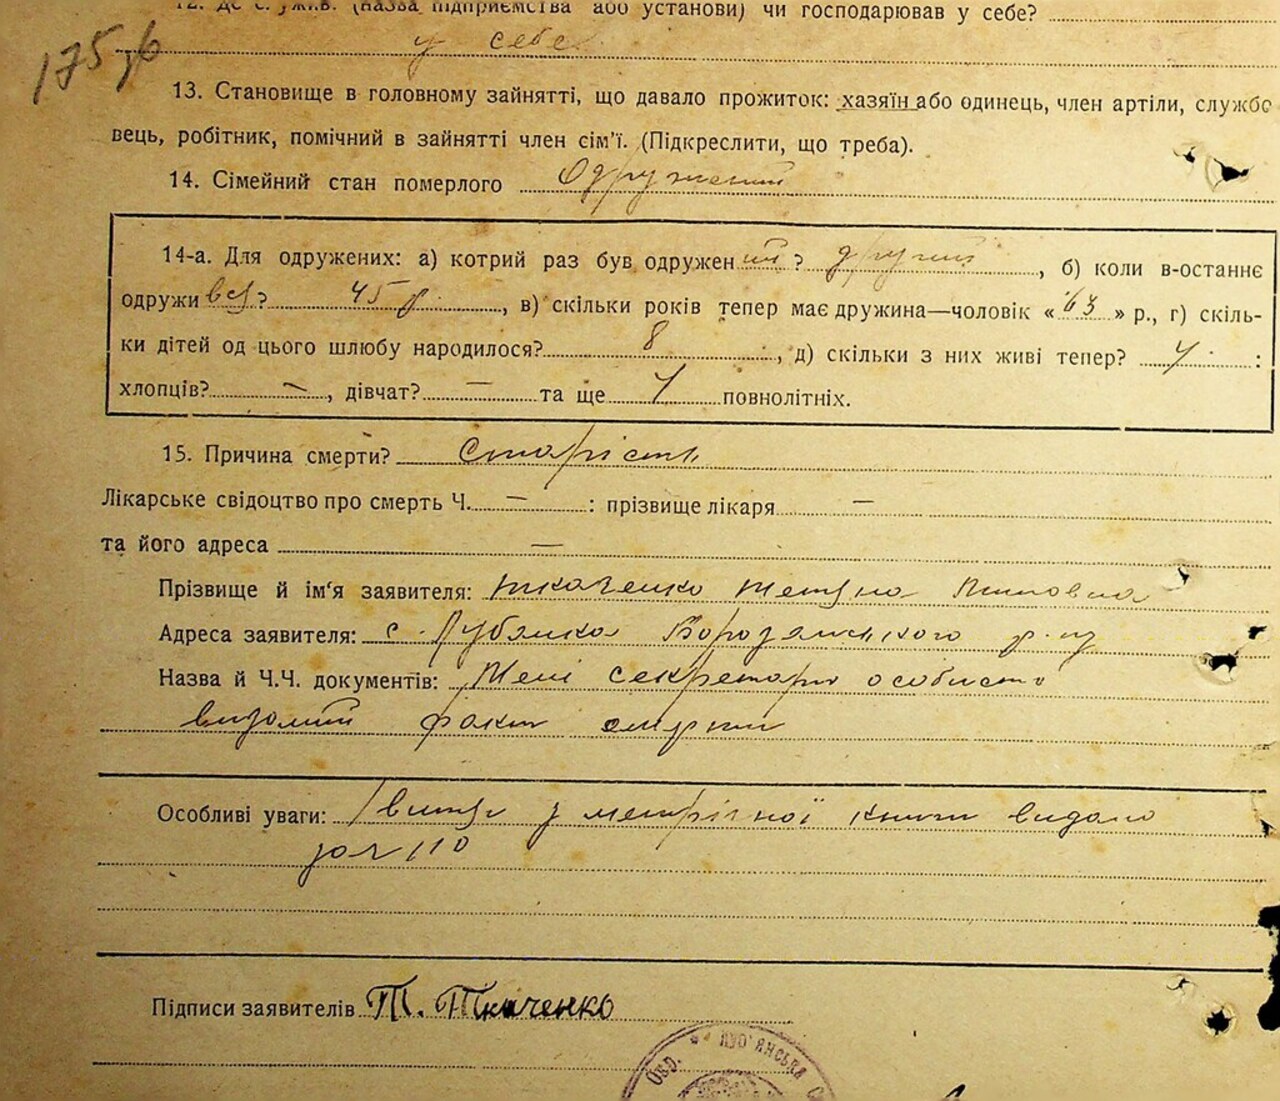 12. Де служив. (назва підприємства або установи) чи господарював у себе?
175 зв
у себе
13. Становище в головному зайнятті, що давало прожиток: хазяїн або одинець, член артіли, службо
вець, робітник, помічний в зайнятті член сім’ї. (Підкреслити, що треба).
14. Сімейний стан померлого Одружений
14-а. Для одружених: а) котрий раз був одружений? другий, б) коли в-останнє
одруживсь? 45 р., в) скільки років тепер має дружина—чоловік «63» р., г) скіль-
ки дітей од цього шлюбу народилося? 8, д) скільки з них живі тепер? 4 :
хлопців? —, дівчат? — та ще 4 повнолітніх.
15. Причина смерти? старість
Лікарське свідоцтво про смерть Ч. — : прізвище лікаря —
та його адреса —
Прізвище й ім‘я заявителя: Ткаченко Тетяна
Адреса заявителя: с. Луб'янка Бородянського р-ну
Назва й Ч.Ч. документів: Мені секретарю особисто
відомий факт смерти
Особливі уваги: витяг з метрічної книги видано
за № 110
Підписи заявителів Т. Ткаченко
ЛУБ'ЯНСЬКА